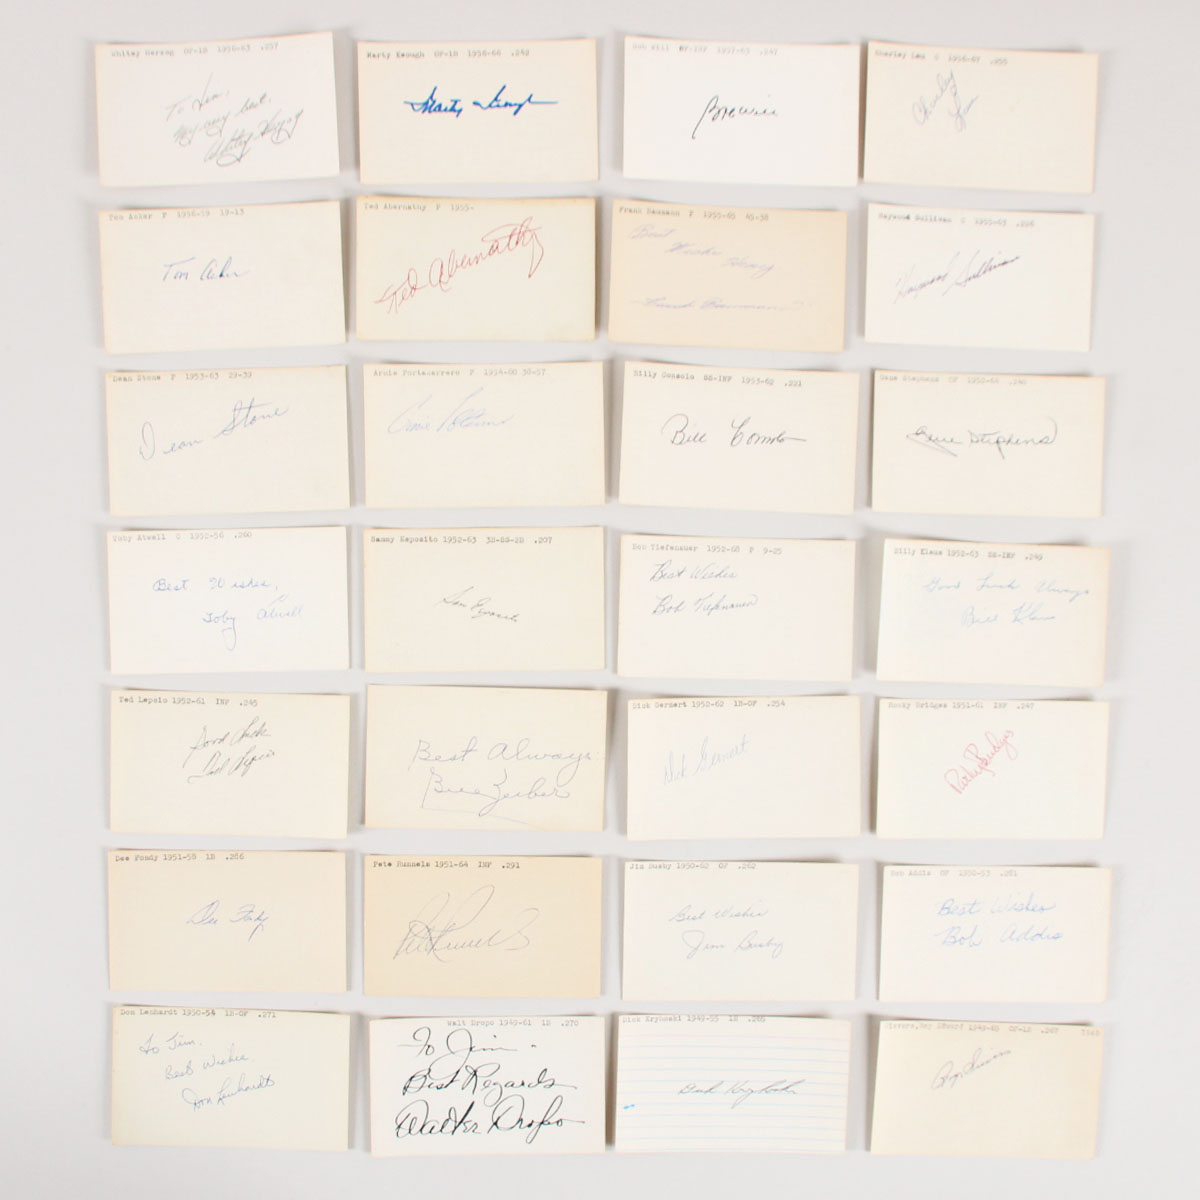 Whitey Herzog OF-1B 1956-63 .257
To Jim,
My very best,
Whitey Herzog
Marty Keough OF-1B 1956-66 .242
Marty Keough
Bob Will OF-1BF 1957-63 .247
Bob Will
Charley Lau C 1956-67 .255
Charley
Lau
Tom Acker P 1956-59 19-13
Tom Acker
Ted Abernathy P 1955-
Ted Abernathy
Frank Baumann P 1955-65 45-38
Best
Wishes
Frank Baumann
Haywood Sullivan C 1955-63 .226
Haywood Sullivan
Dean Stone P 1953-63 29-39
Dean Stone
Arnie Portocarrero P 1954-60 38-57
Arnie
Billy Consolo SS-INF 1953-62 .221
Bill Consolo
Gene Stephens OF 1952-64 .240
Gene Stephens
Toby Atwell C 1952-56 .260
Best Wishes,
Toby Atwell
Sammy Esposito 1952-63 3B-SS-2B .207
Sam Esposito
Bob Tiefenauer 1952-68 P 9-25
Best Wishes
Bob Tiefenauer
Billy Klaus 1952-63 SS-INF .249
Good Luck Always
Bill Klaus
Ted Lepcio 1952-61 INF .245
Good Luck
Ted Lepcio
Best Always
Bill
Dick Gernert 1952-62 1B-OF .254
Dick Gernert
Rocky Bridges 1951-61 INF .247
Rocky Bridges
Dee Fondy 1951-58 1B .286
Dee Fondy
Pete Runnels 1951-64 INF .291
Pete Runnels
Jim Busby 1950-62 OF .262
Best Wishes
Jim Busby
Bob Addis OF 1950-53 .281
Best Wishes
Bob Addis
Don Lenhardt 1950-54 1B-OF .271
To Jim.
Best Wishes
Don Lenhardt
Walt Dropo 1949-61 1B .270
To Jim -
Best Regards
Walter Dropo
Dick Kryhoski 1949-55 1B .265
Dick Kryhoski
Sievers,Roy Edward 1949-65 OF-1B .267
Roy Sievers